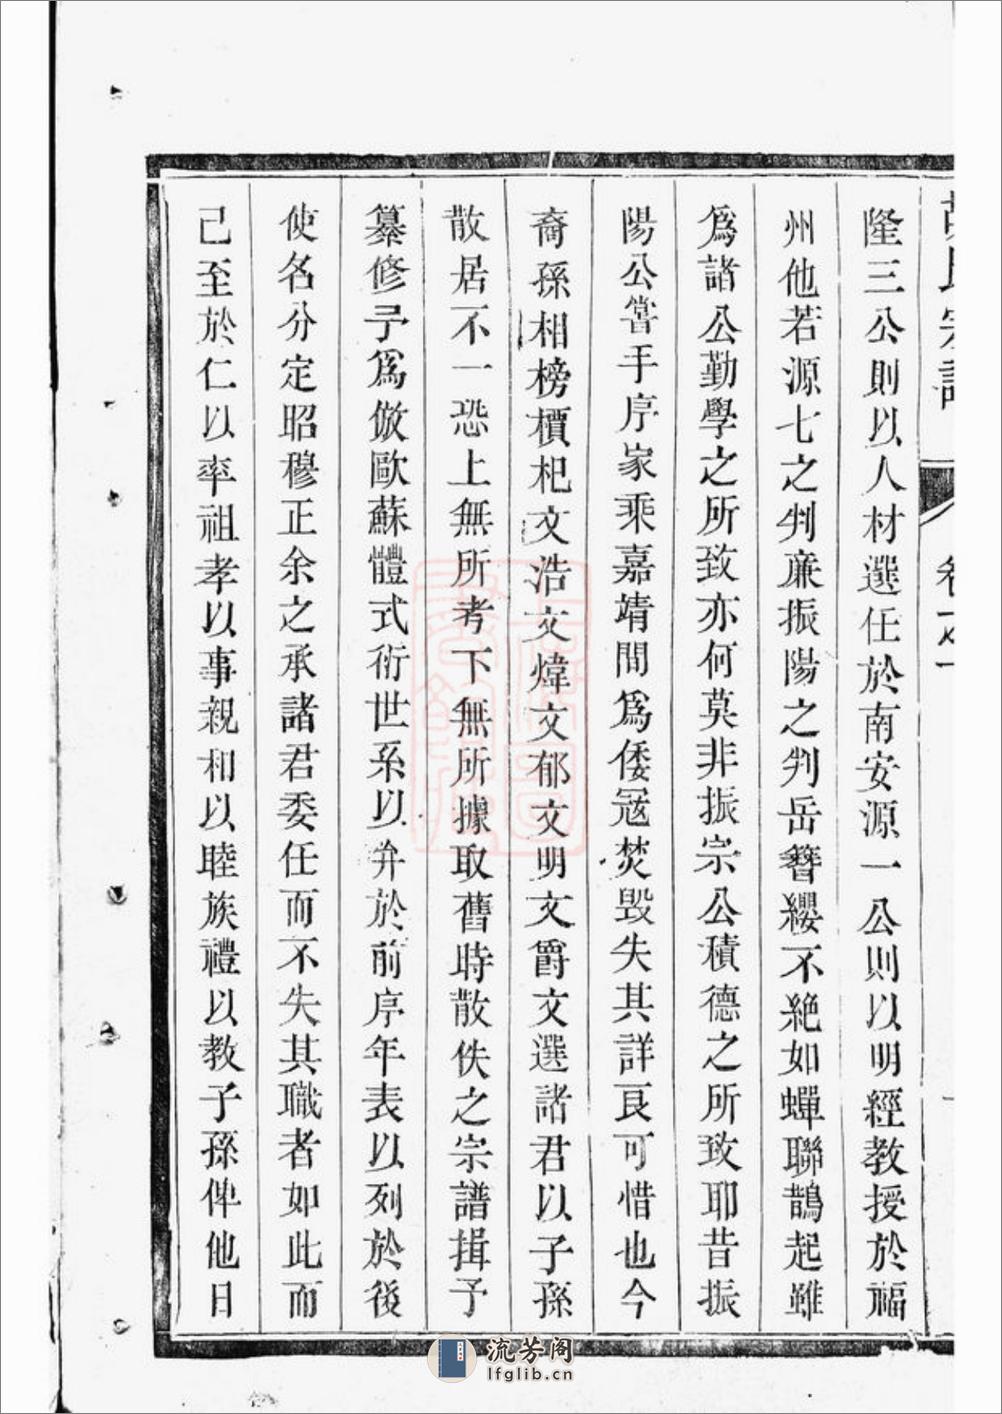 胡氏宗譜
卷之一
隆三公則以人材選任於南安源一公則以明經教授於福
州他若源七之判廉振陽之判岳簪纓不絶如蟬聯鵲起雖
爲諸公勤學之所致亦何莫非振宗公積德之所致耶昔振
陽公嘗手序家乘嘉靖間爲倭冦焚毀失其詳良可惜也今
裔孫相榜檟杞文浩文煒文郁文明文爵文選諸君以子孫
散居不一恐上無所考下無所據取舊時散佚之宗譜揖予
纂修予爲倣歐蘇體式衍世系以弁於前序年表以列於後
使名分定昭穆正余之承諸君委任而不失其職者如此而
己至於仁以率祖孝以事親和以睦族禮以教子孫俾他日
流芳阁
lfglib.cn